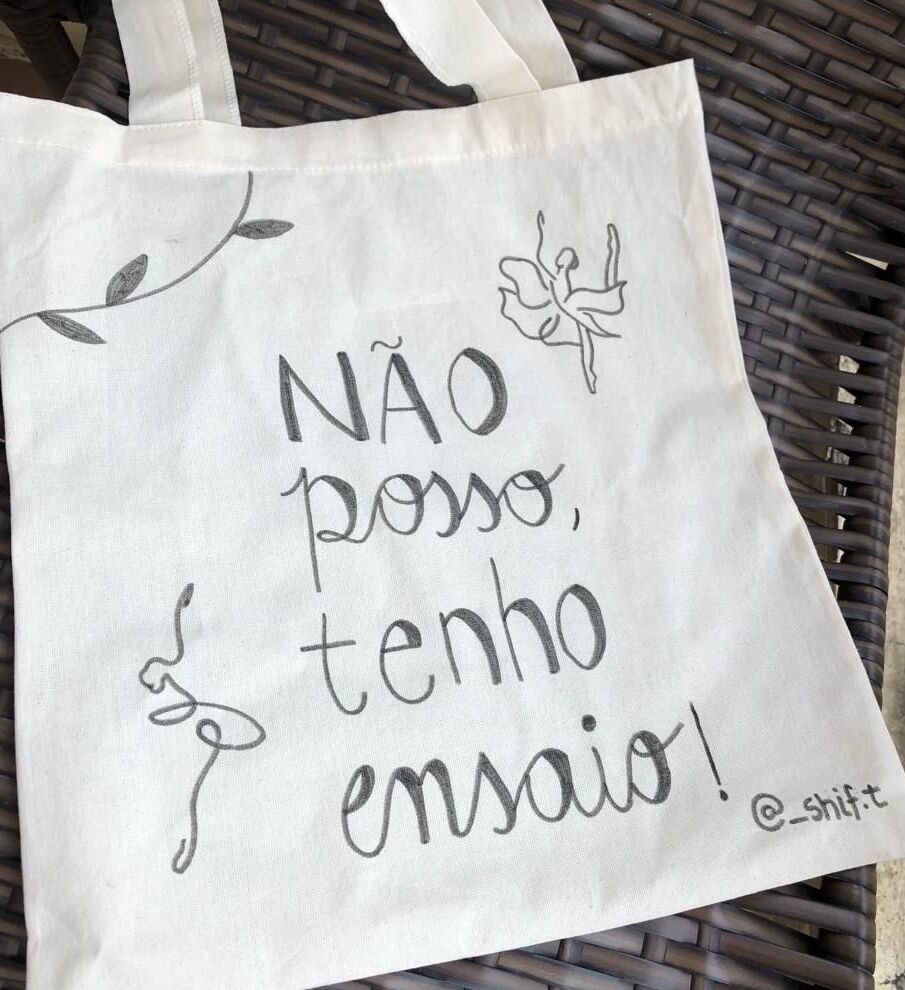 NÃO
posso,
tenho
ensaio!
@_shif.t